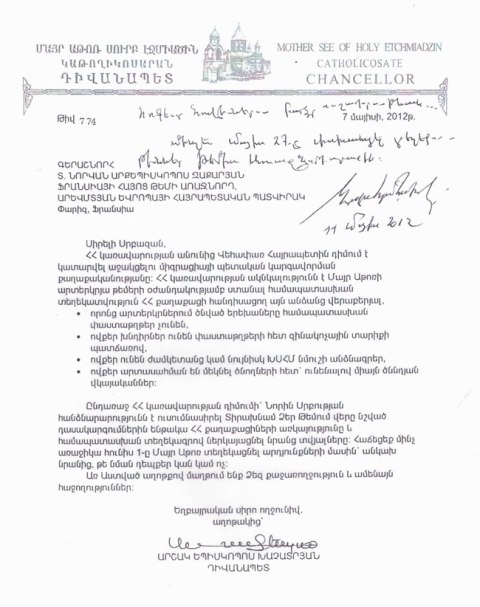 ՄԱՅՐ ԱԹՈՌ ՍՈՒՐԲ ԷՋՄԻԱԾԻՆ
ԿԱԹՈՂԻԿՈՍԱՐԱՆ
ԴԻՎԱՆԱՊԵՏ
MOTHER SEE OF HOLY ETCHMIADZIN
CATHOLICOSATE
CHANCELLOR
Թիվ 774
7 մայիսի, 2012թ.
մայիս 27.
ԳԵՐԱՇՆՈՐՀ
Տ. ՆՈՐՎԱՆ ԱՐՔԵՊԻՍԿՈՊՈՍ ԶԱՔԱՐՅԱՆ
ՖՐԱՆՍԻԱՅԻ ՀԱՅՈՑ ԹԵՄԻ ԱՌԱՋՆՈՐԴ,
ԱՐԵՎՄՏՅԱՆ ԵՎՐՈՊԱՅԻ ՀԱՅՐԱՊԵՏԱԿԱՆ ՊԱՏՎԻՐԱԿ
Փարիզ, Ֆրանսիա
11 մայիս 2012
Սիրելի Սրբազան,
ՀՀ կառավարության անունից Վեհափառ Հայրապետին դիմում է
կատարվել աջակցելու միգրացիայի պետական կարգավորման
քաղաքականությանը: ՀՀ կառավարության ակնկալությունն է Մայր Աթոռի
արտերկրյա թեմերի օժանդակությամբ ստանալ համապատասխան
տեղեկատվություն ՀՀ քաղաքացի հանդիսացող այն անձանց վերաբերյալ,
• որոնց արտերկրներում ծնված երեխաները համապատասխան
փաստաթղթեր չունեն,
• ովքեր խնդիրներ ունեն փաստաթղթերի հետ զինակոչային տարիքի
պատճառով,
• ովքեր ունեն ժամկետանց կամ նույնիսկ ԽՍՀՄ նմուշի անձնագրեր,
• ովքեր արտասահման են մեկնել ծնողների հետ՝ ունենալով միայն ծննդյան
վկայականներ:
Ընդառաջ ՀՀ կառավարության դիմումի՝ Նորին Սրբության
հանձնարարությունն է ուսումնասիրել Տիրախնամ Ձեր Թեմում վերը նշված
դասակարգումներին ենթակա ՀՀ քաղաքացիների առկայությունը և
համապատասխան տեղեկագրով ներկայացնել նրանց տվյալները: Հաճեցեք մինչ
առաջիկա հունիս 1-ը Մայր Աթոռ տեղեկացնել արդյունքների մասին՝ անկախ
նրանից, թե նման դեպքեր կան կամ ոչ:
Առ Աստված աղոթքով մաղթում ենք Ձեզ քաջառողջություն և ամենայն
հաջողություններ:
Եղբայրական սիրո ողջունիվ,
աղոթակից՝
ԱՐՇԱԿ ԵՊԻՍԿՈՊՈՍ ԽԱՉԱՏՐՅԱՆ
ԴԻՎԱՆԱՊԵՏ